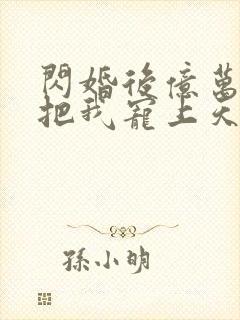 閃婚後億萬
把我寵上天
孫小明